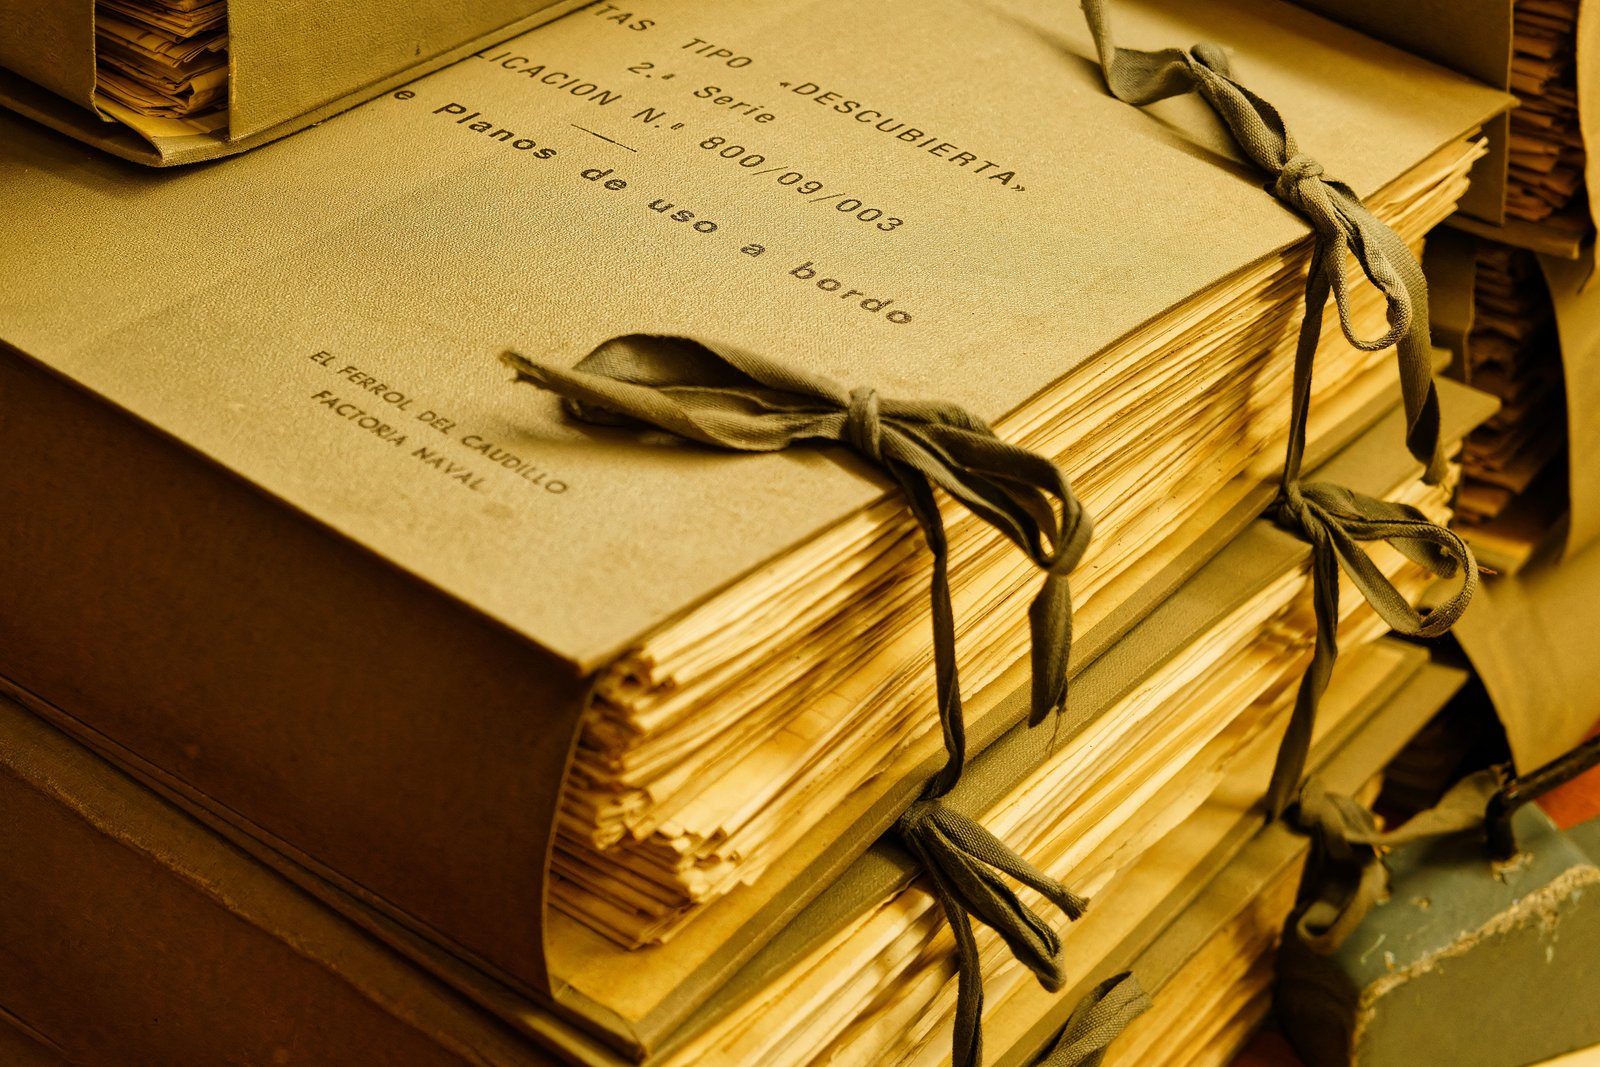 TAS TIPO «DESCUBIERTA»
2.ª Serie
LICACION N.º 800/09/003
e Planos de uso a bordo
EL FERROL DEL CAUDILLO
FACTORIA NAVAL